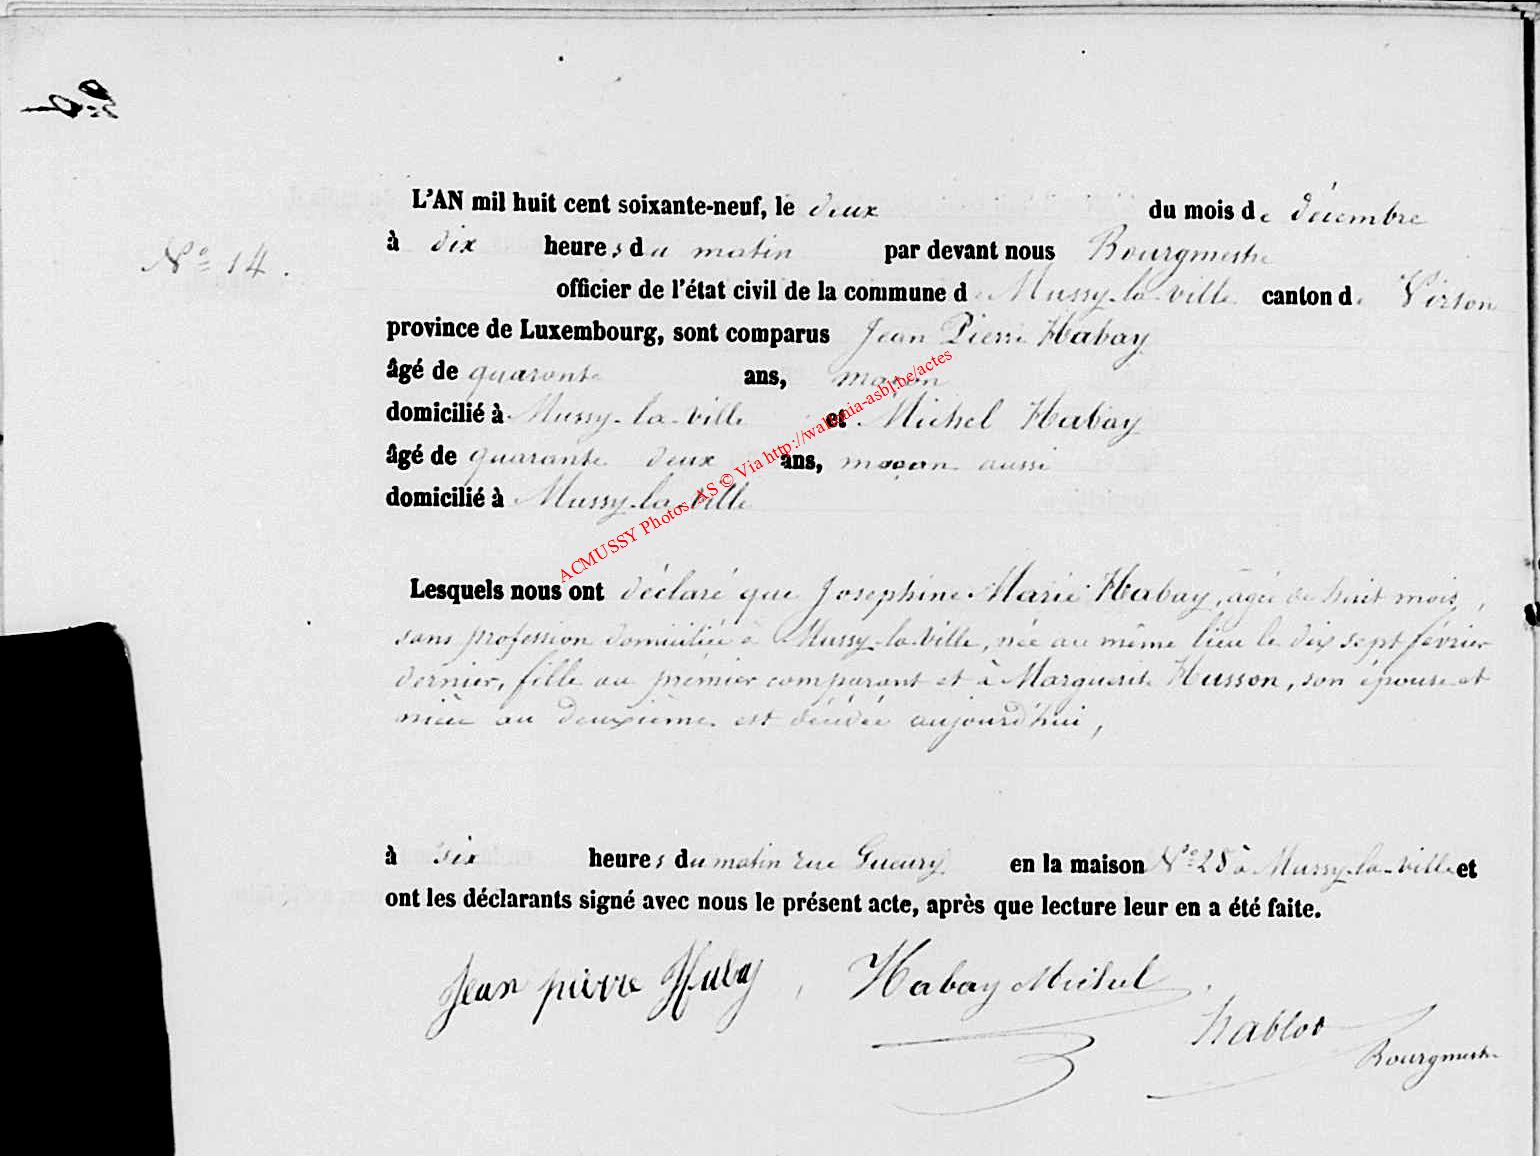 L'AN mil huit cent soixante-neuf, le deux du mois de décembre
N° 14.
à dix heures du matin par devant nous Bourgmestre
officier de l'état civil de la commune de Mussy-la-ville canton de Virton
province de Luxembourg, sont comparus Jean Pierre Habay
âgé de quarante ans, maçon
domicilié à Mussy-la-ville et Michel Habay
âgé de quarante deux ans, maçon aussi
domicilié à Mussy-la-ville
ACMUSSY Photos AS © Via http://wallonia-asbl.be/actes
Lesquels nous ont déclaré que Josephine Marie Habay, agée de huit mois,
sans profession domiciliée à Mussy-la-ville, née au même lieu le dix sept février
dernier, fille au prémier comparant et à Marguerite Husson, son épouse et
nièce au deuxième est décédée aujourd'hui,
à six heures du matin rue Gueury en la maison N° 28 à Mussy-la-ville et
ont les déclarants signé avec nous le présent acte, après que lecture leur en a été faite.
Jean pierre Haby, Habay Michel
Nablot
Bourgmestre